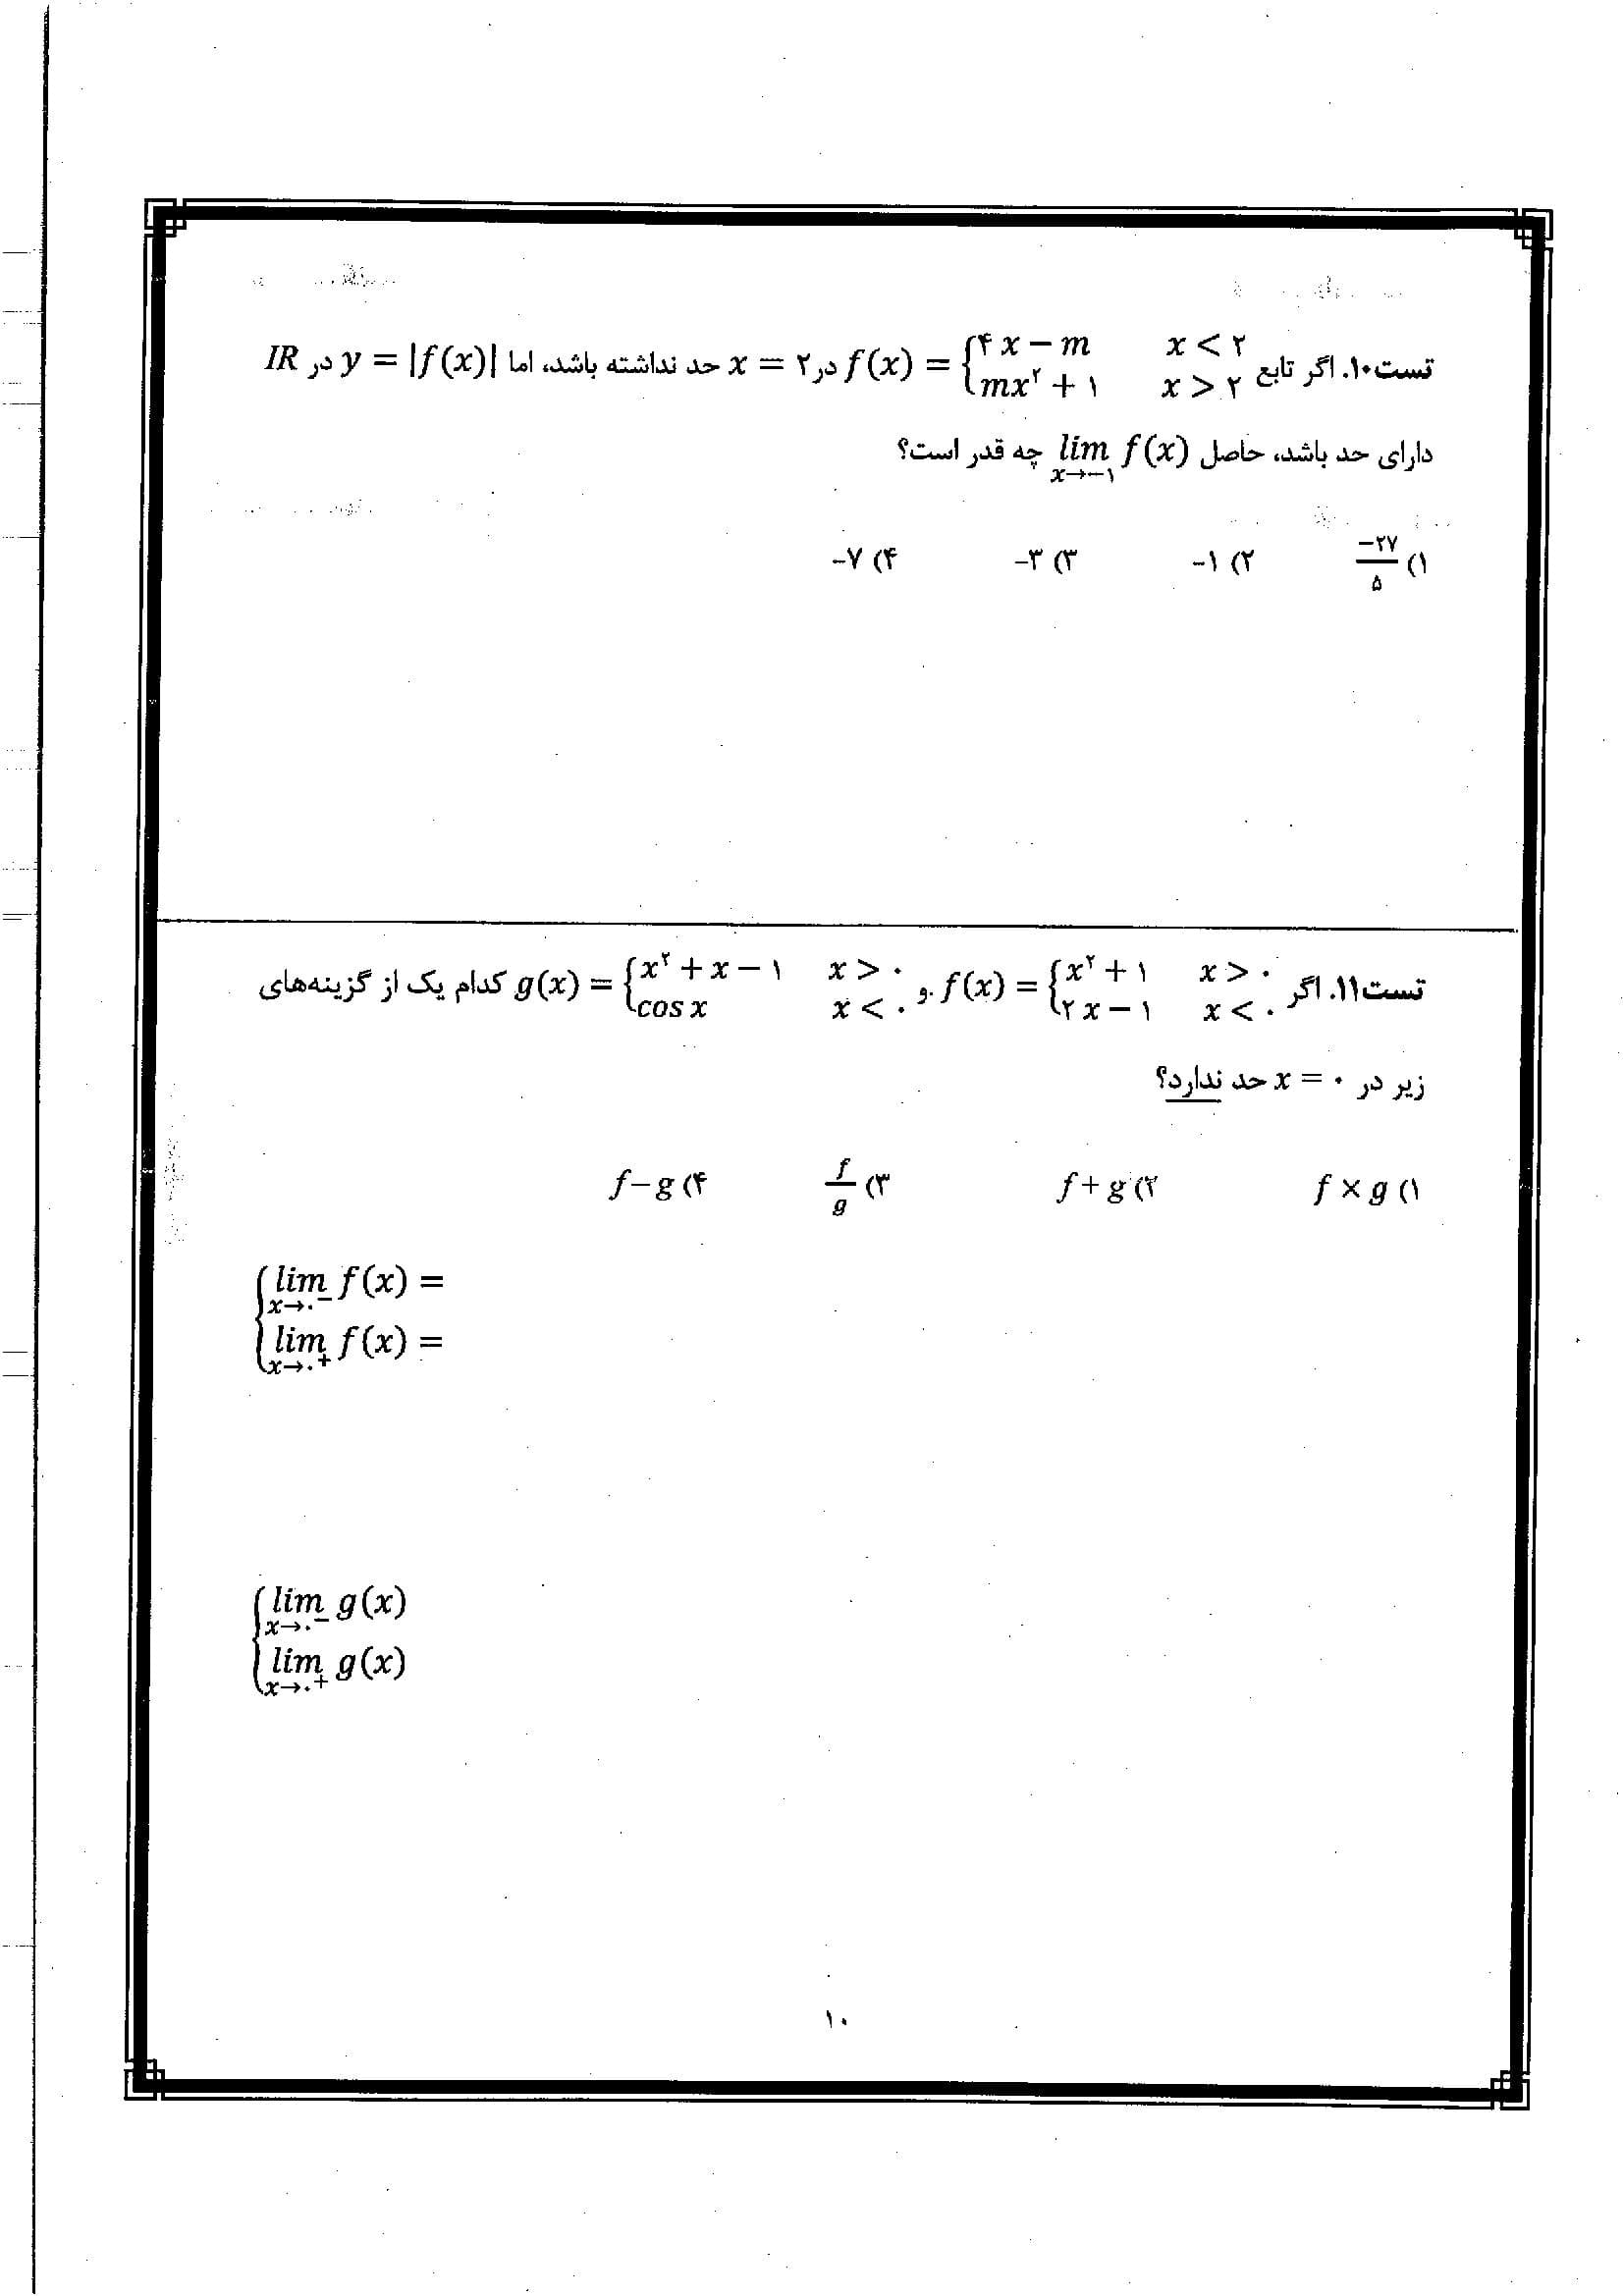 تست۱۰. اگر تابع f(x) = {۴x − m   x < ۲ ; mx² + ۱   x > ۲ در x = ۲ حد نداشته باشد، اما y = |f(x)| در IR
دارای حد باشد، حاصل lim x→−۱ f(x) چه قدر است؟
۱) −۲۷/۵   ۲) −۱   ۳) −۳   ۴) −۷
تست۱۱. اگر f(x) = {x² + ۱   x > ۰ ; ۲x − ۱   x < ۰ و g(x) = {x² + x − ۱   x > ۰ ; cos x   x < ۰ کدام یک از گزینه‌های
زیر در x = ۰ حد ندارد؟
۱) f × g   ۲) f + g   ۳) f/g   ۴) f − g
lim x→۰⁻ f(x) =
lim x→۰⁺ f(x) =
lim x→۰⁻ g(x)
lim x→۰⁺ g(x)
۱۰